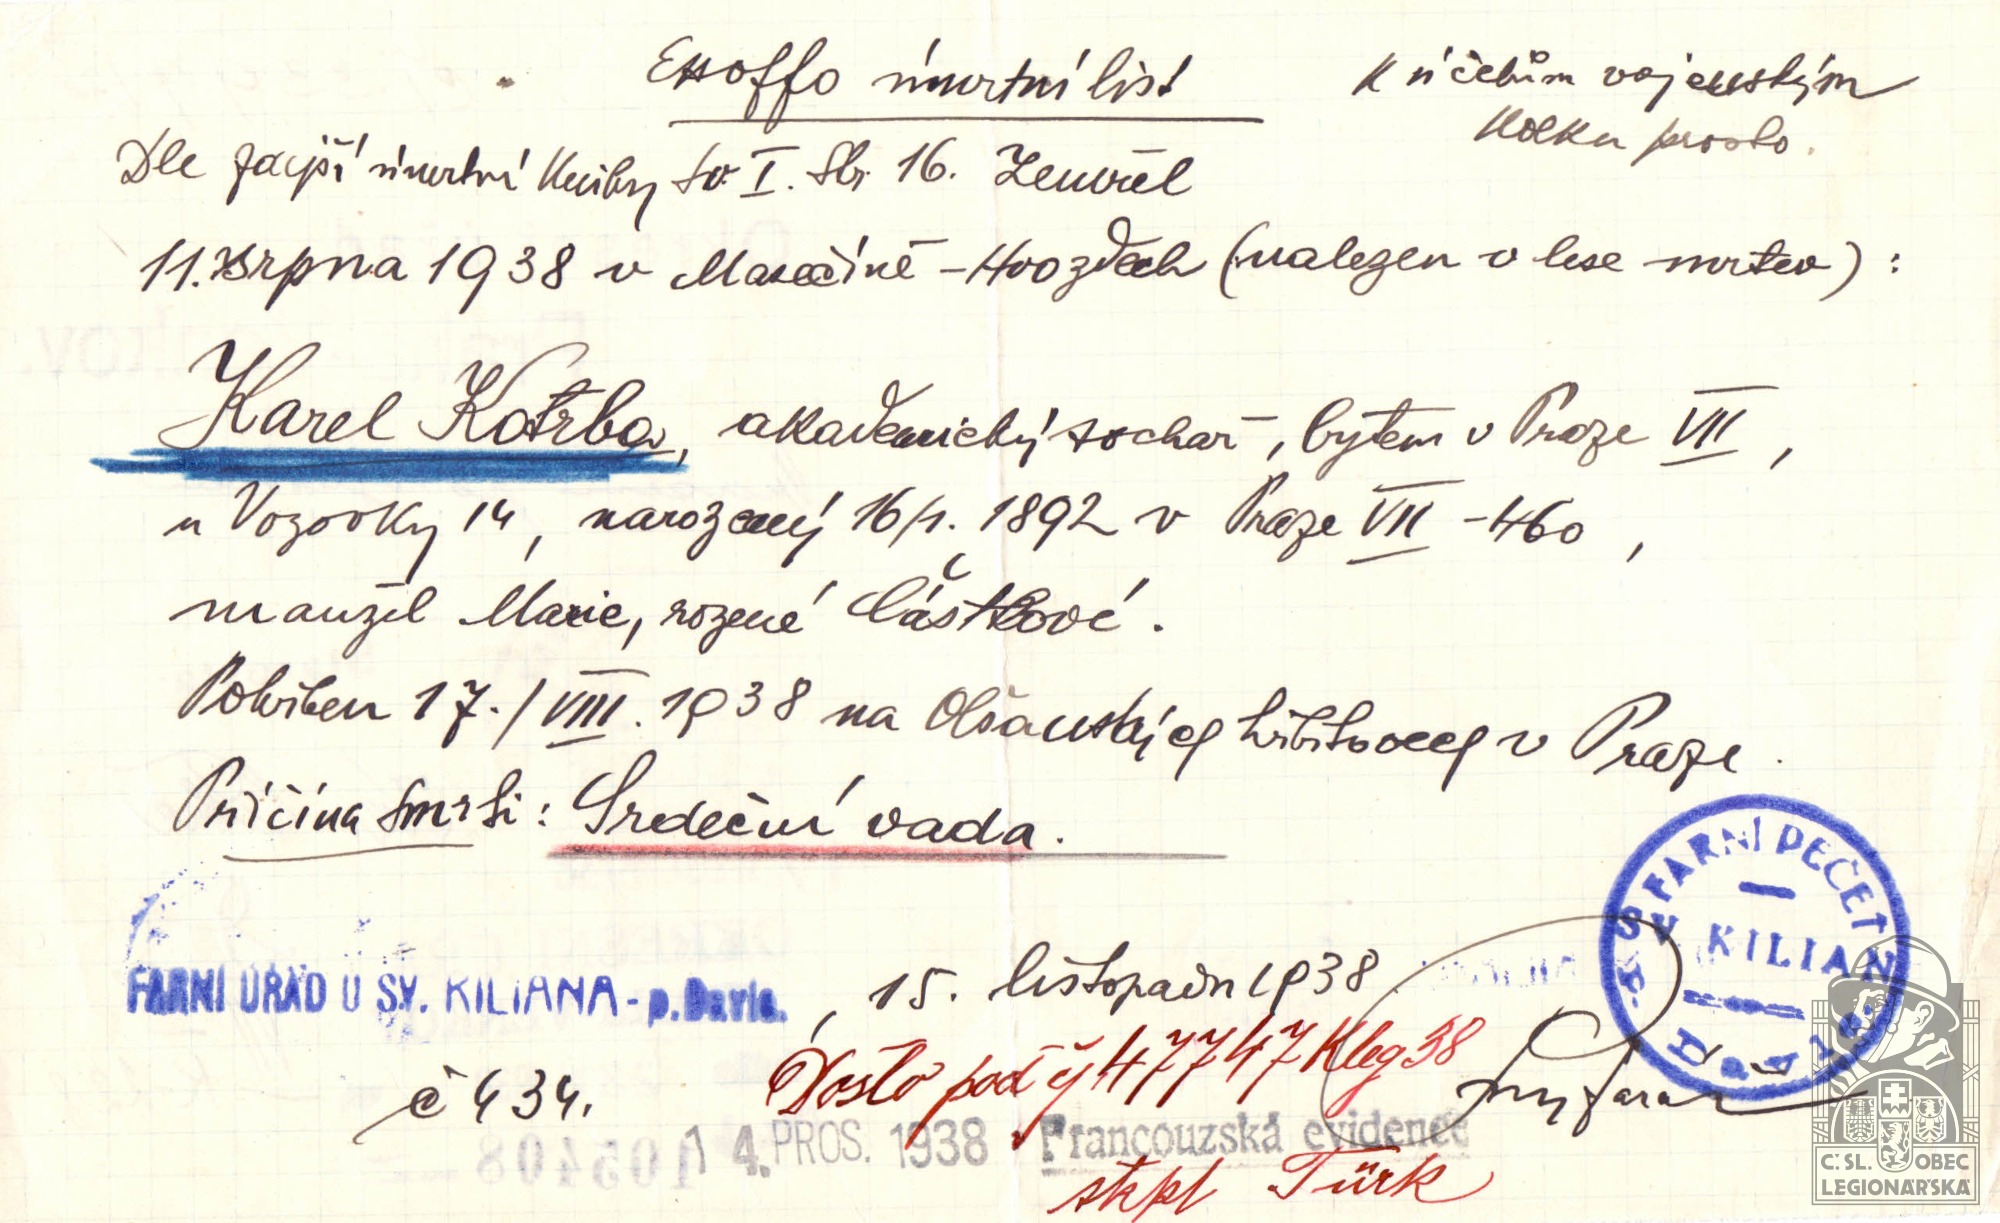 Exoffo úmrtní list
K účelům vojenským
kolku prosto.
Dle zdejší úmrtní knihy sv. I. str. 16. zemřel
11. srpna 1938 v Masečíně - Hvozdech (nalezen v lese mrtev) :
Karel Kotrba, akademický sochař, bytem v Praze VII,
u Vozovky 14, narozený 16/1. 1892 v Praze VII - 460,
manžel Marie, rozené Částkové.
Pohřben 17./VIII. 1938 na Olšanských hřbitovech v Praze.
Příčina smrti: Srdeční vada.
FARNÍ PEČEŤ
SV. KILIAN
Davle
FARNÍ ÚŘAD U SV. KILIANA - p. Davle.
, 15. listopadu 1938.
č 434.
Došlo pod čj 47747 Kleg 38
14. PROS. 1938
Francouzská evidence
105408
škpt Türk
farář
Č.SL. OBEC
LEGIONÁŘSKÁ